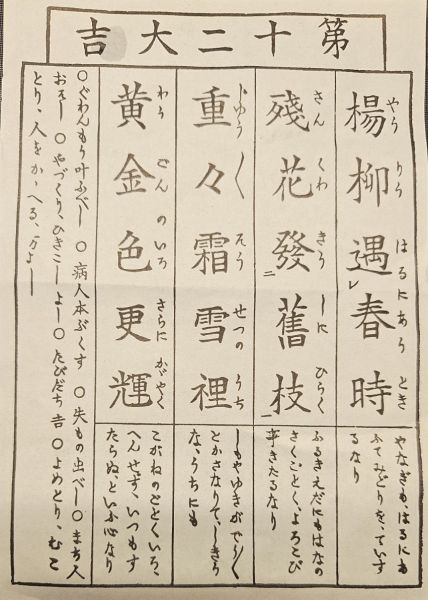 第十二大吉
楊柳遇春時
やうりうはるにあうとき
やなぎも、はるにあ
ふてみどりを、ていす
るなり
殘花發舊枝
さんくわきうしにひらく
二 一
ふるきえだにもはなの
さくごとく、よろこび
事きたるなり
重々霜雪裡
じゆう〱そうせつのうち
しもやゆきが
とかさなりて、
な、うちにも
黄金色更輝
わうごんのいろさらにかゞやく
こがねのごとくいろ、
へんせず、いつもす
たらぬ、といふ心なり
○ぐわんもう叶ふべし ○病人本ぶくす ○失もの出べし ○まち人
おそし ○やづくり、ひきこしよし○たびだち吉 ○よめとり、むこ
とり、人をかゝへる、万よし